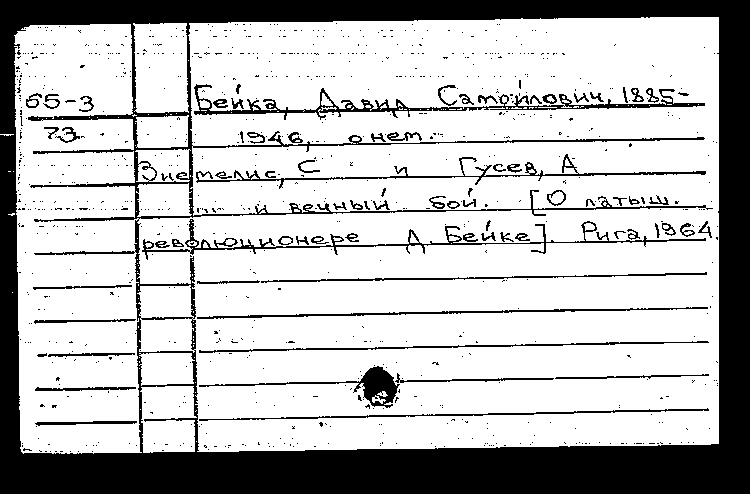 65-3 Бейка, Давид Самойлович, 1885-
73 1946, о нем.
Зиемелис, С и Гусев, А
... и вечный бой. [О латыш.
революционере Д. Бейке]. Рига, 1964.